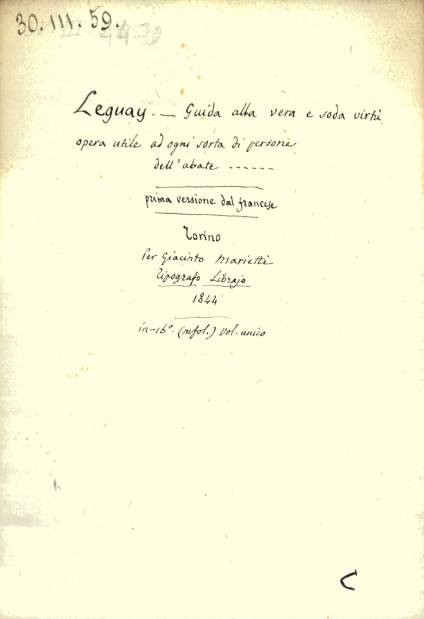 30.III.59.
Leguay. — Guida alla vera e soda virtù
opera utile ad ogni sorta di persone
dell'abate ------
prima versione dal francese
Torino
Per Giacinto Marietti
Tipografo Librajo
1844
in-16°. (mfol.) Vol. unico
C